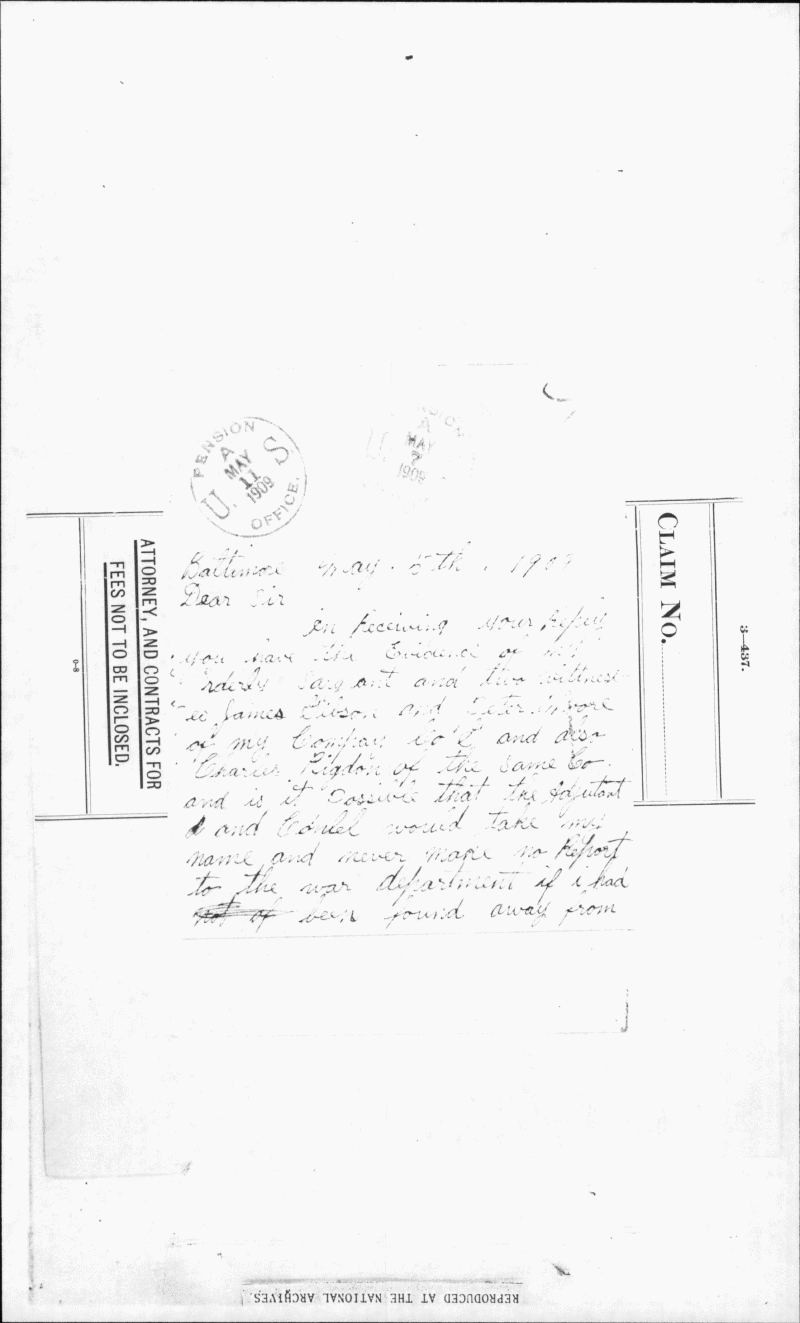 PENSION OFFICE.
U. S.
A
MAY
11
1909
A
MAY
7
1909
U.
3—437.
CLAIM No.
ATTORNEY, AND CONTRACTS FOR
FEES NOT TO BE INCLOSED.
6-8
Baltimore may . 5th . 1909
Dear Sir
in Receiving your Repely
you have the Evidence of my
rderly Sargant and two wittness
es James Gibson and Peter Moore
of my Compay Co and also
Charles Rigdon of the same Co.
and is it Possible that the Adjutant
and would take my
name and never make no Report
to the war department if i had
not of been found away from
REPRODUCED AT THE NATIONAL ARCHIVES.